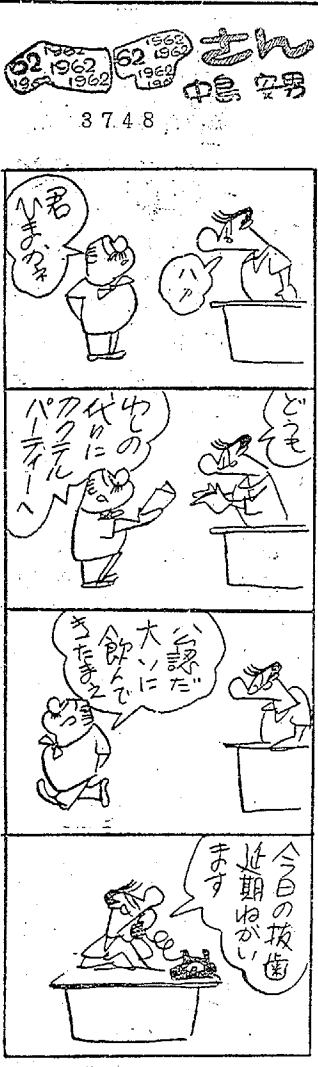 62 1962 1962 1962 1962
62 1962 1962 1962 196
さん
中島 安男
3748
君
ひまかネ
ハア
どうも
わしの
代りに
カクテル
パーティーへ
公認だ
大いに
飲んで
きたまえ
今日の抜歯
延期ねがい
ます